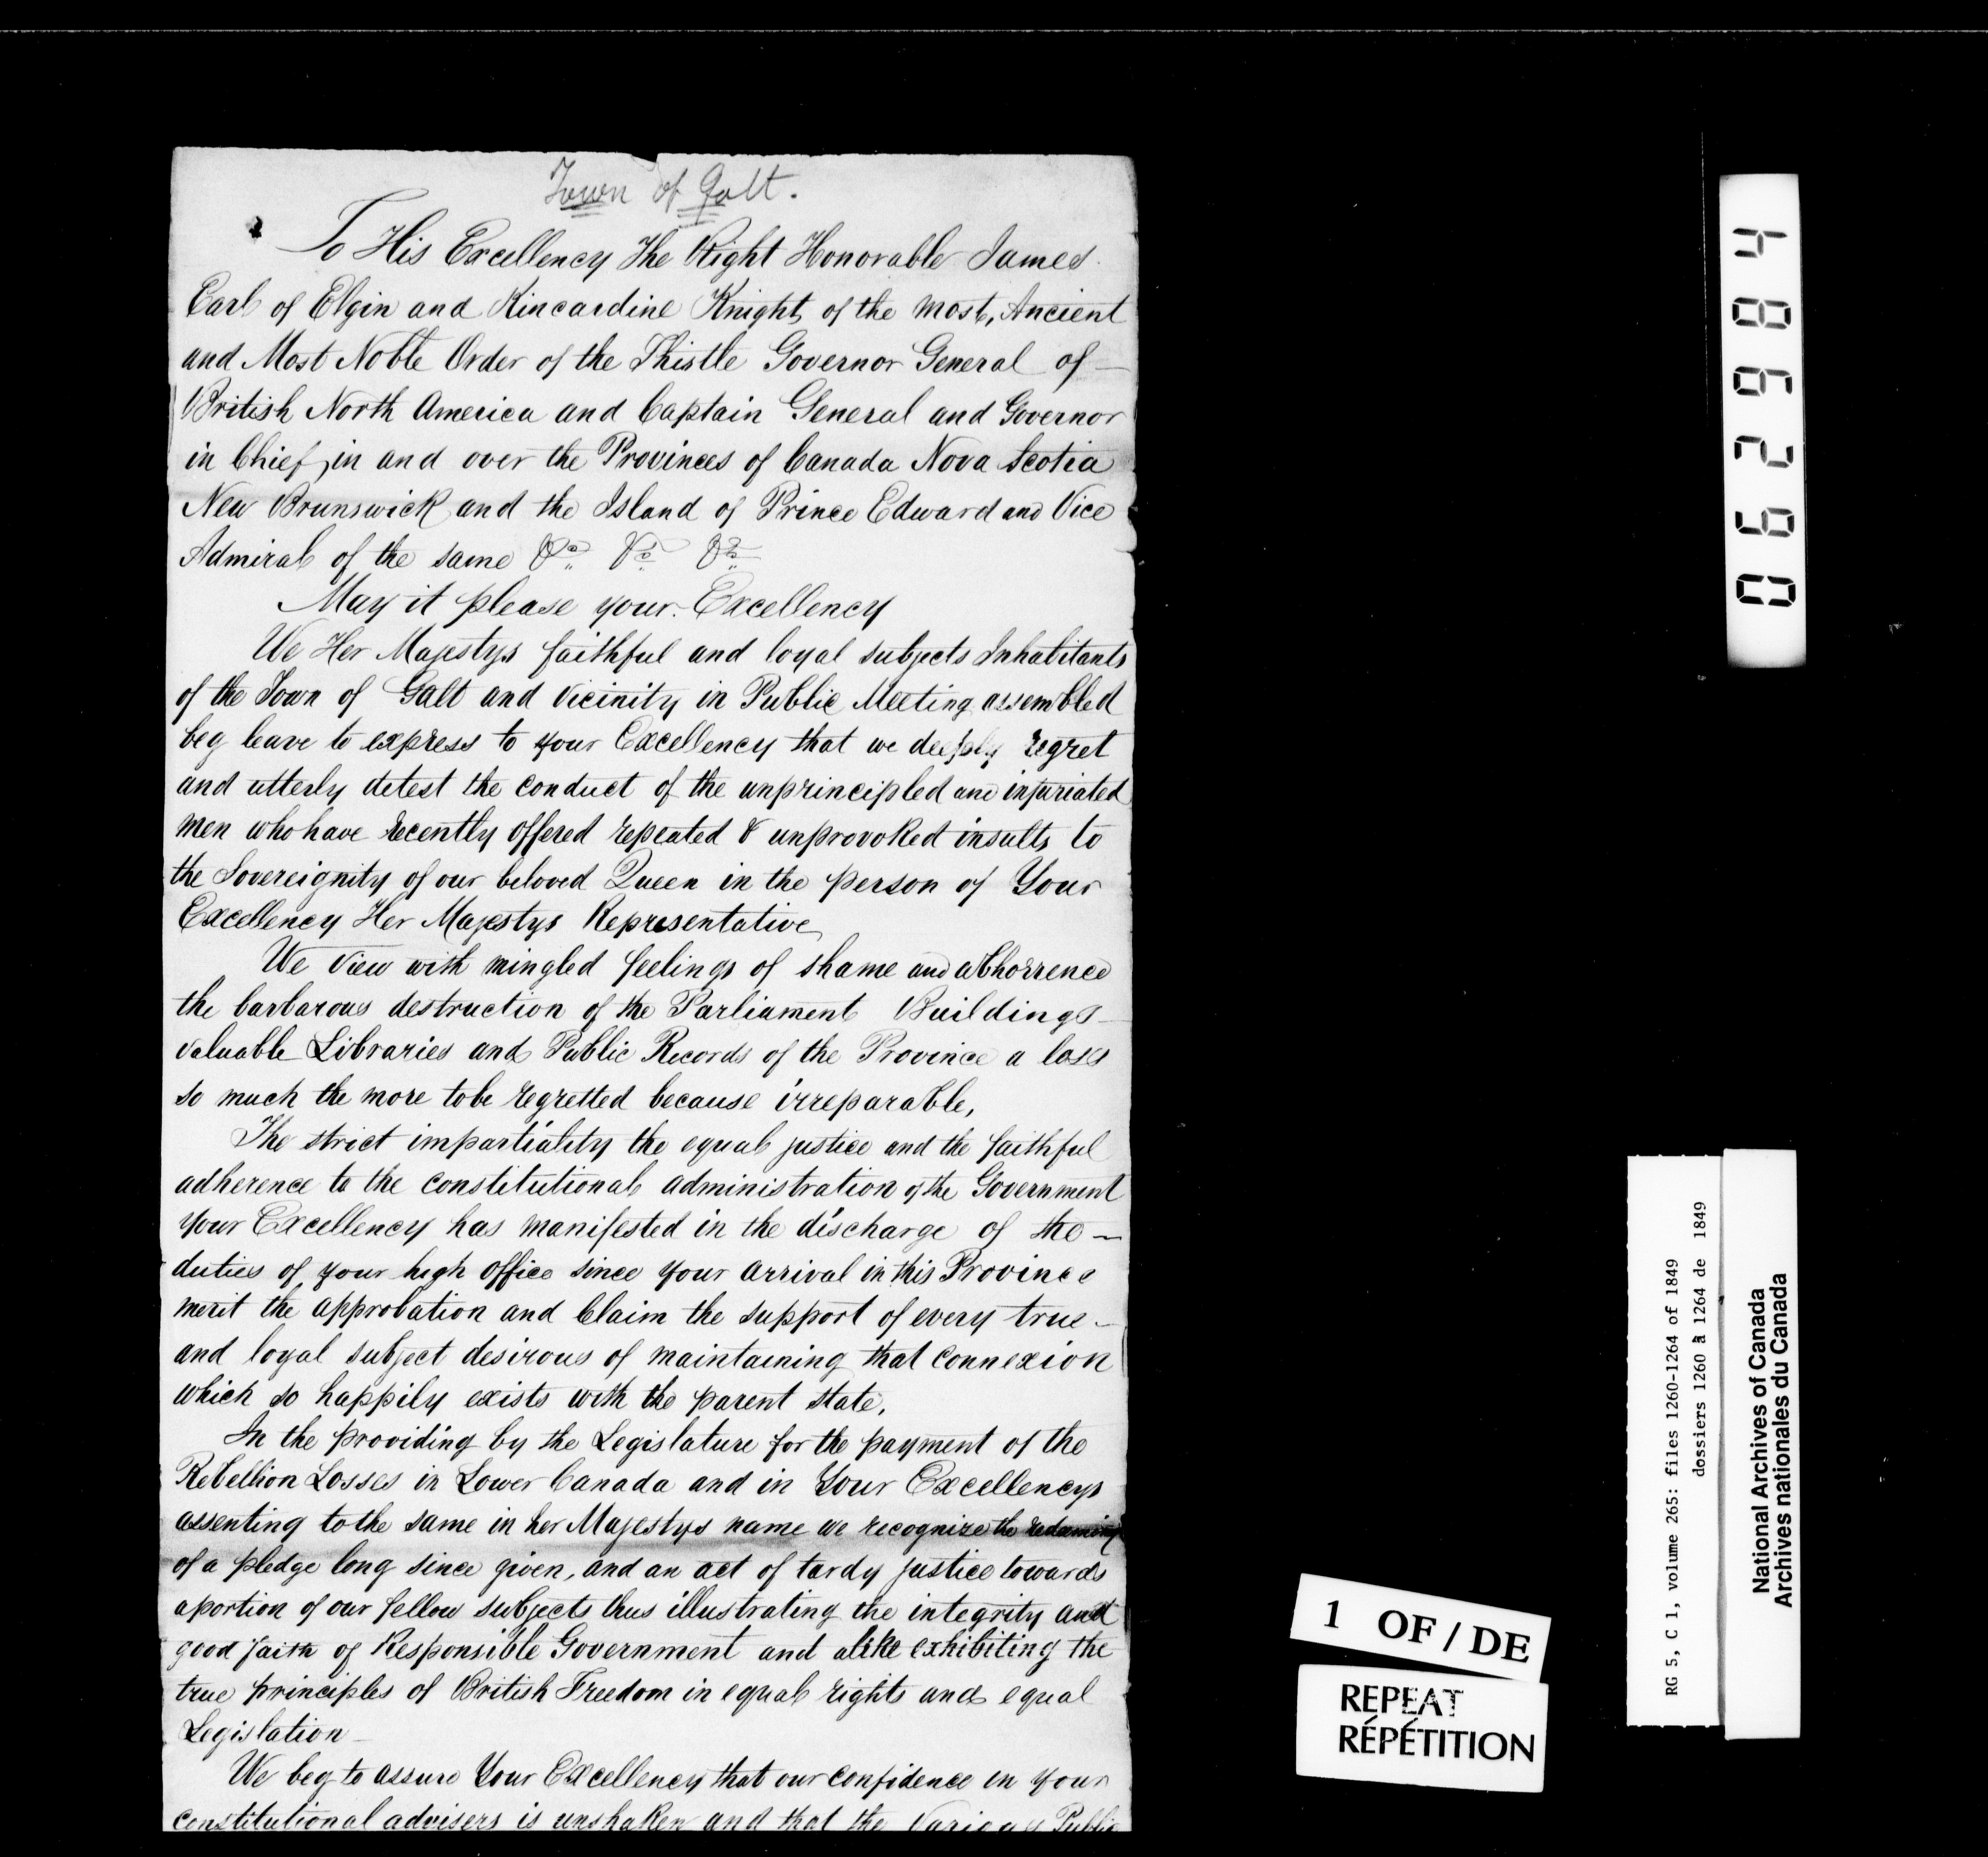 Town of Galt.
To His Excellency The Right Honorable James
Earl of Elgin and Kincardine Knight of the most, Ancient
and Most Noble Order of the Thistle Governor General of —
British North America and Captain General and Governor
in Chief, in and over the Provinces of Canada Nova Scotia
New Brunswick and the Island of Prince Edward and Vice
Admiral of the same &c &c &c
May it please your Excellency
We Her Majestys faithful and loyal subjects Inhabitants
of the Town of Galt and vicinity in Public Meeting assembled
beg leave to express to your Excellency that we deeply regret
and utterly detest the conduct of the unprincipled and infuriated
men who have recently offered repeated & unprovoked insults to
the Sovereignity of our beloved Queen in the person of Your
Excellency Her Majestys Representative
We view with mingled feelings of shame and abhorrence
the barbarous destruction of the Parliament Buildings
valuable Libraries and Public Records of the Province a loss
so much the more to be regretted because irreparable,
The strict impartiality the equal justice and the faithful
adherence to the constitutional administration of the Government
your Excellency has manifested in the discharge of the —
duties of your high office since your arrival in this Province
merit the approbation and Claim the support of every true —
and loyal subject desirous of maintaining that connexion
which so happily exists with the parent state,
In the providing by the Legislature for the payment of the
Rebellion Losses in Lower Canada and in Your Excellencys
assenting to the same in her Majestys name we recognize the redeeming
of a pledge long since given, and an act of tardy justice towards
a portion of our fellow subjects thus illustrating the integrity and
good faith of Responsible Government and alike exhibiting the
true principles of British Freedom in equal rights and equal
Legislation —
We beg to assure Your Excellency that our confidence in your
constitutional advisers is unshaken and that the various Public
062984
RG 5, C 1, volume 265: files 1260-1264 of 1849
dossiers 1260 à 1264 de 1849
National Archives of Canada
Archives nationales du Canada
1 OF / DE
REPEAT
RÉPÉTITION